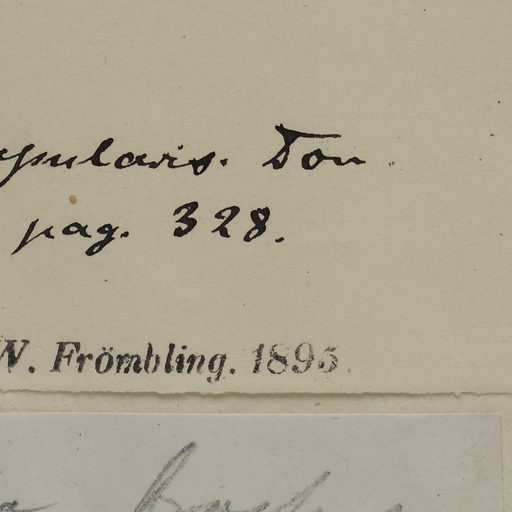 pularis. Don
pag. 328.
W. Frömbling. 1895